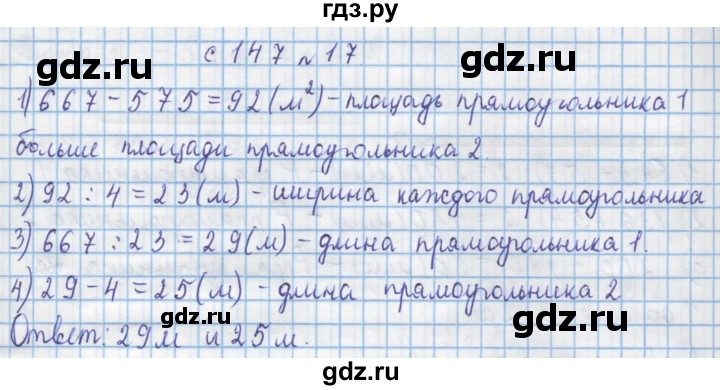 гдз.ру
с 147 № 17
1) 667 - 575 = 92 (м²) - площадь прямоугольника 1
больше площади прямоугольника 2.
2) 92 : 4 = 23 (м) - ширина каждого прямоугольника
3) 667 : 23 = 29 (м) - длина прямоугольника 1.
4) 29 - 4 = 25 (м) - длина прямоугольника 2
Ответ: 29 м и 25 м.
гдз.ру